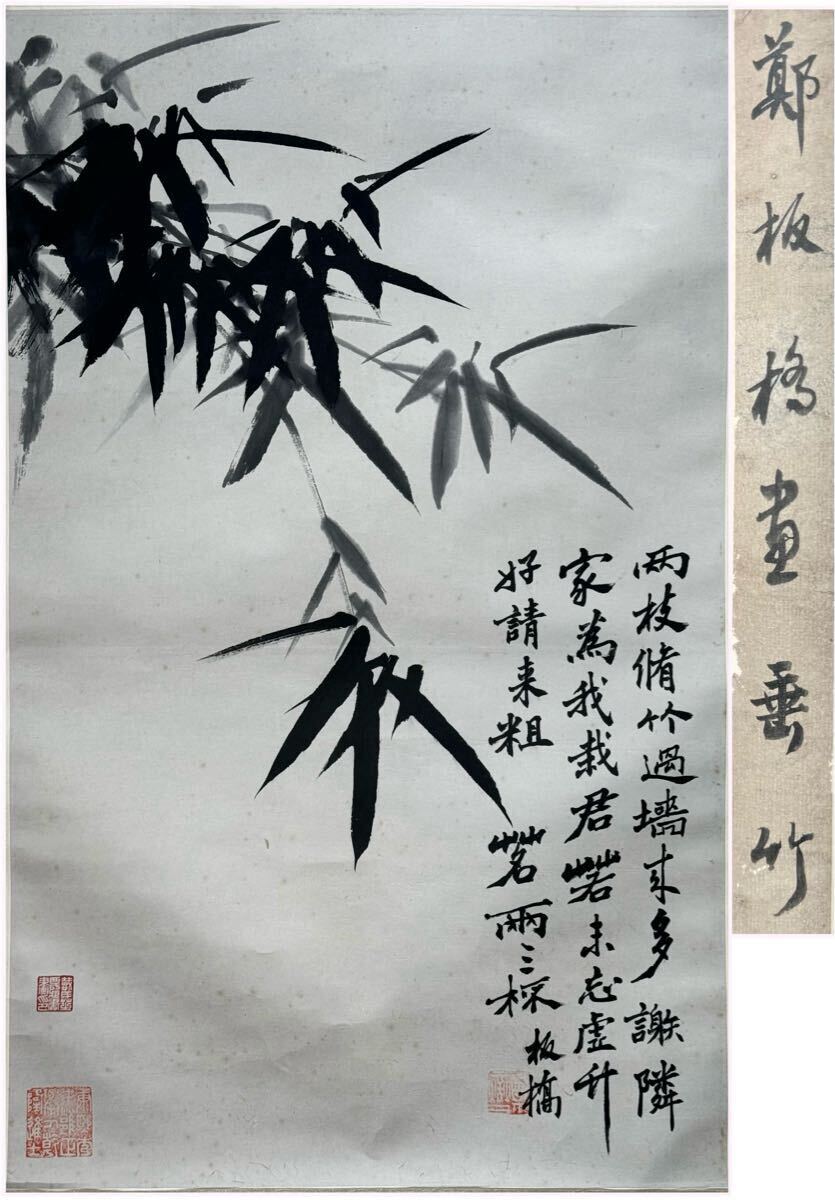 鄭板橋畫垂竹
两枝脩竹過墻来多謝隣
家為我栽君若未忘虚竹
好請来粗茗兩三杯
板橋